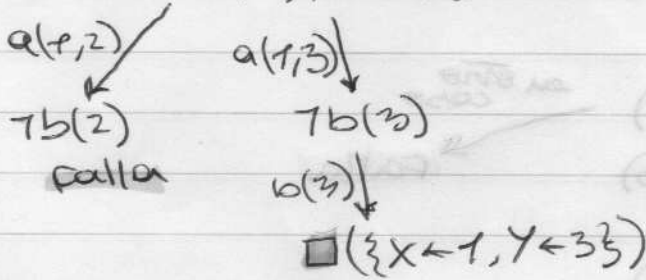 a(1,2) a(1,3)
¬b(2) ¬b(3)
falla b(3)
□({X←1, Y←3})